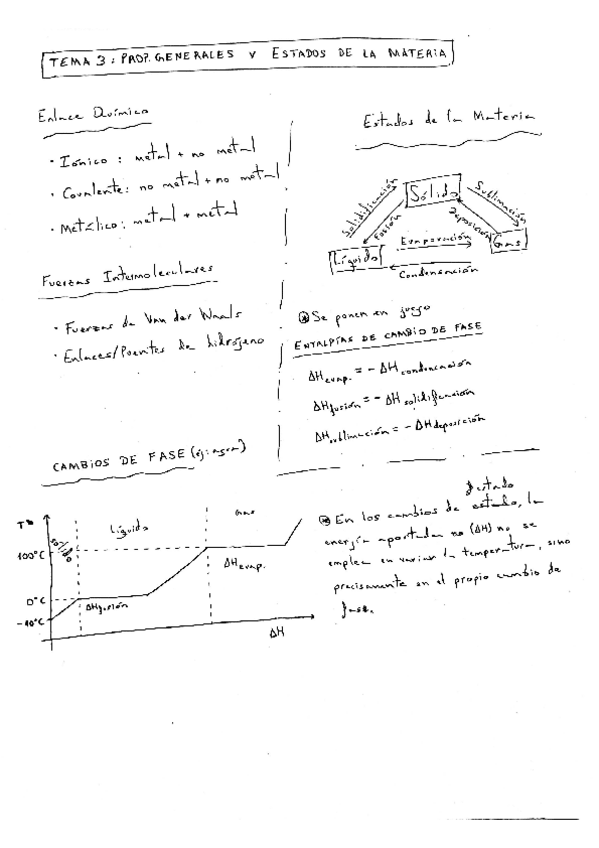 TEMA 3: PROP. GENERALES Y ESTADOS DE LA MATERIA
Enlace Químico
· Iónico: metal + no metal
· Covalente: no metal + no metal
· Metálico: metal + metal
Fuerzas Intermoleculares
· Fuerzas de Van der Waals
· Enlaces/Puentes de hidrógeno
Estados de la Materia
Sólido
Solidificación
Fusión
Sublimación
Deposición
Líquido
Evaporación
Gas
Condensación
⊛ Se ponen en juego
ENTALPÍAS DE CAMBIO DE FASE
ΔHevap. = - ΔHcondensación
ΔHfusión = - ΔHsolidificación
ΔHsublimación = - ΔHdeposición
CAMBIOS DE FASE (ej: agua)
Tª
sólido
Líquido
Gas
100°C
ΔHevap.
0°C
ΔHfusión
-10°C
ΔH
estado
⊛ En los cambios de estado, la
energía aportada no (ΔH) no se
emplea en variar la temperatura, sino
precisamente en el propio cambio de
fase.